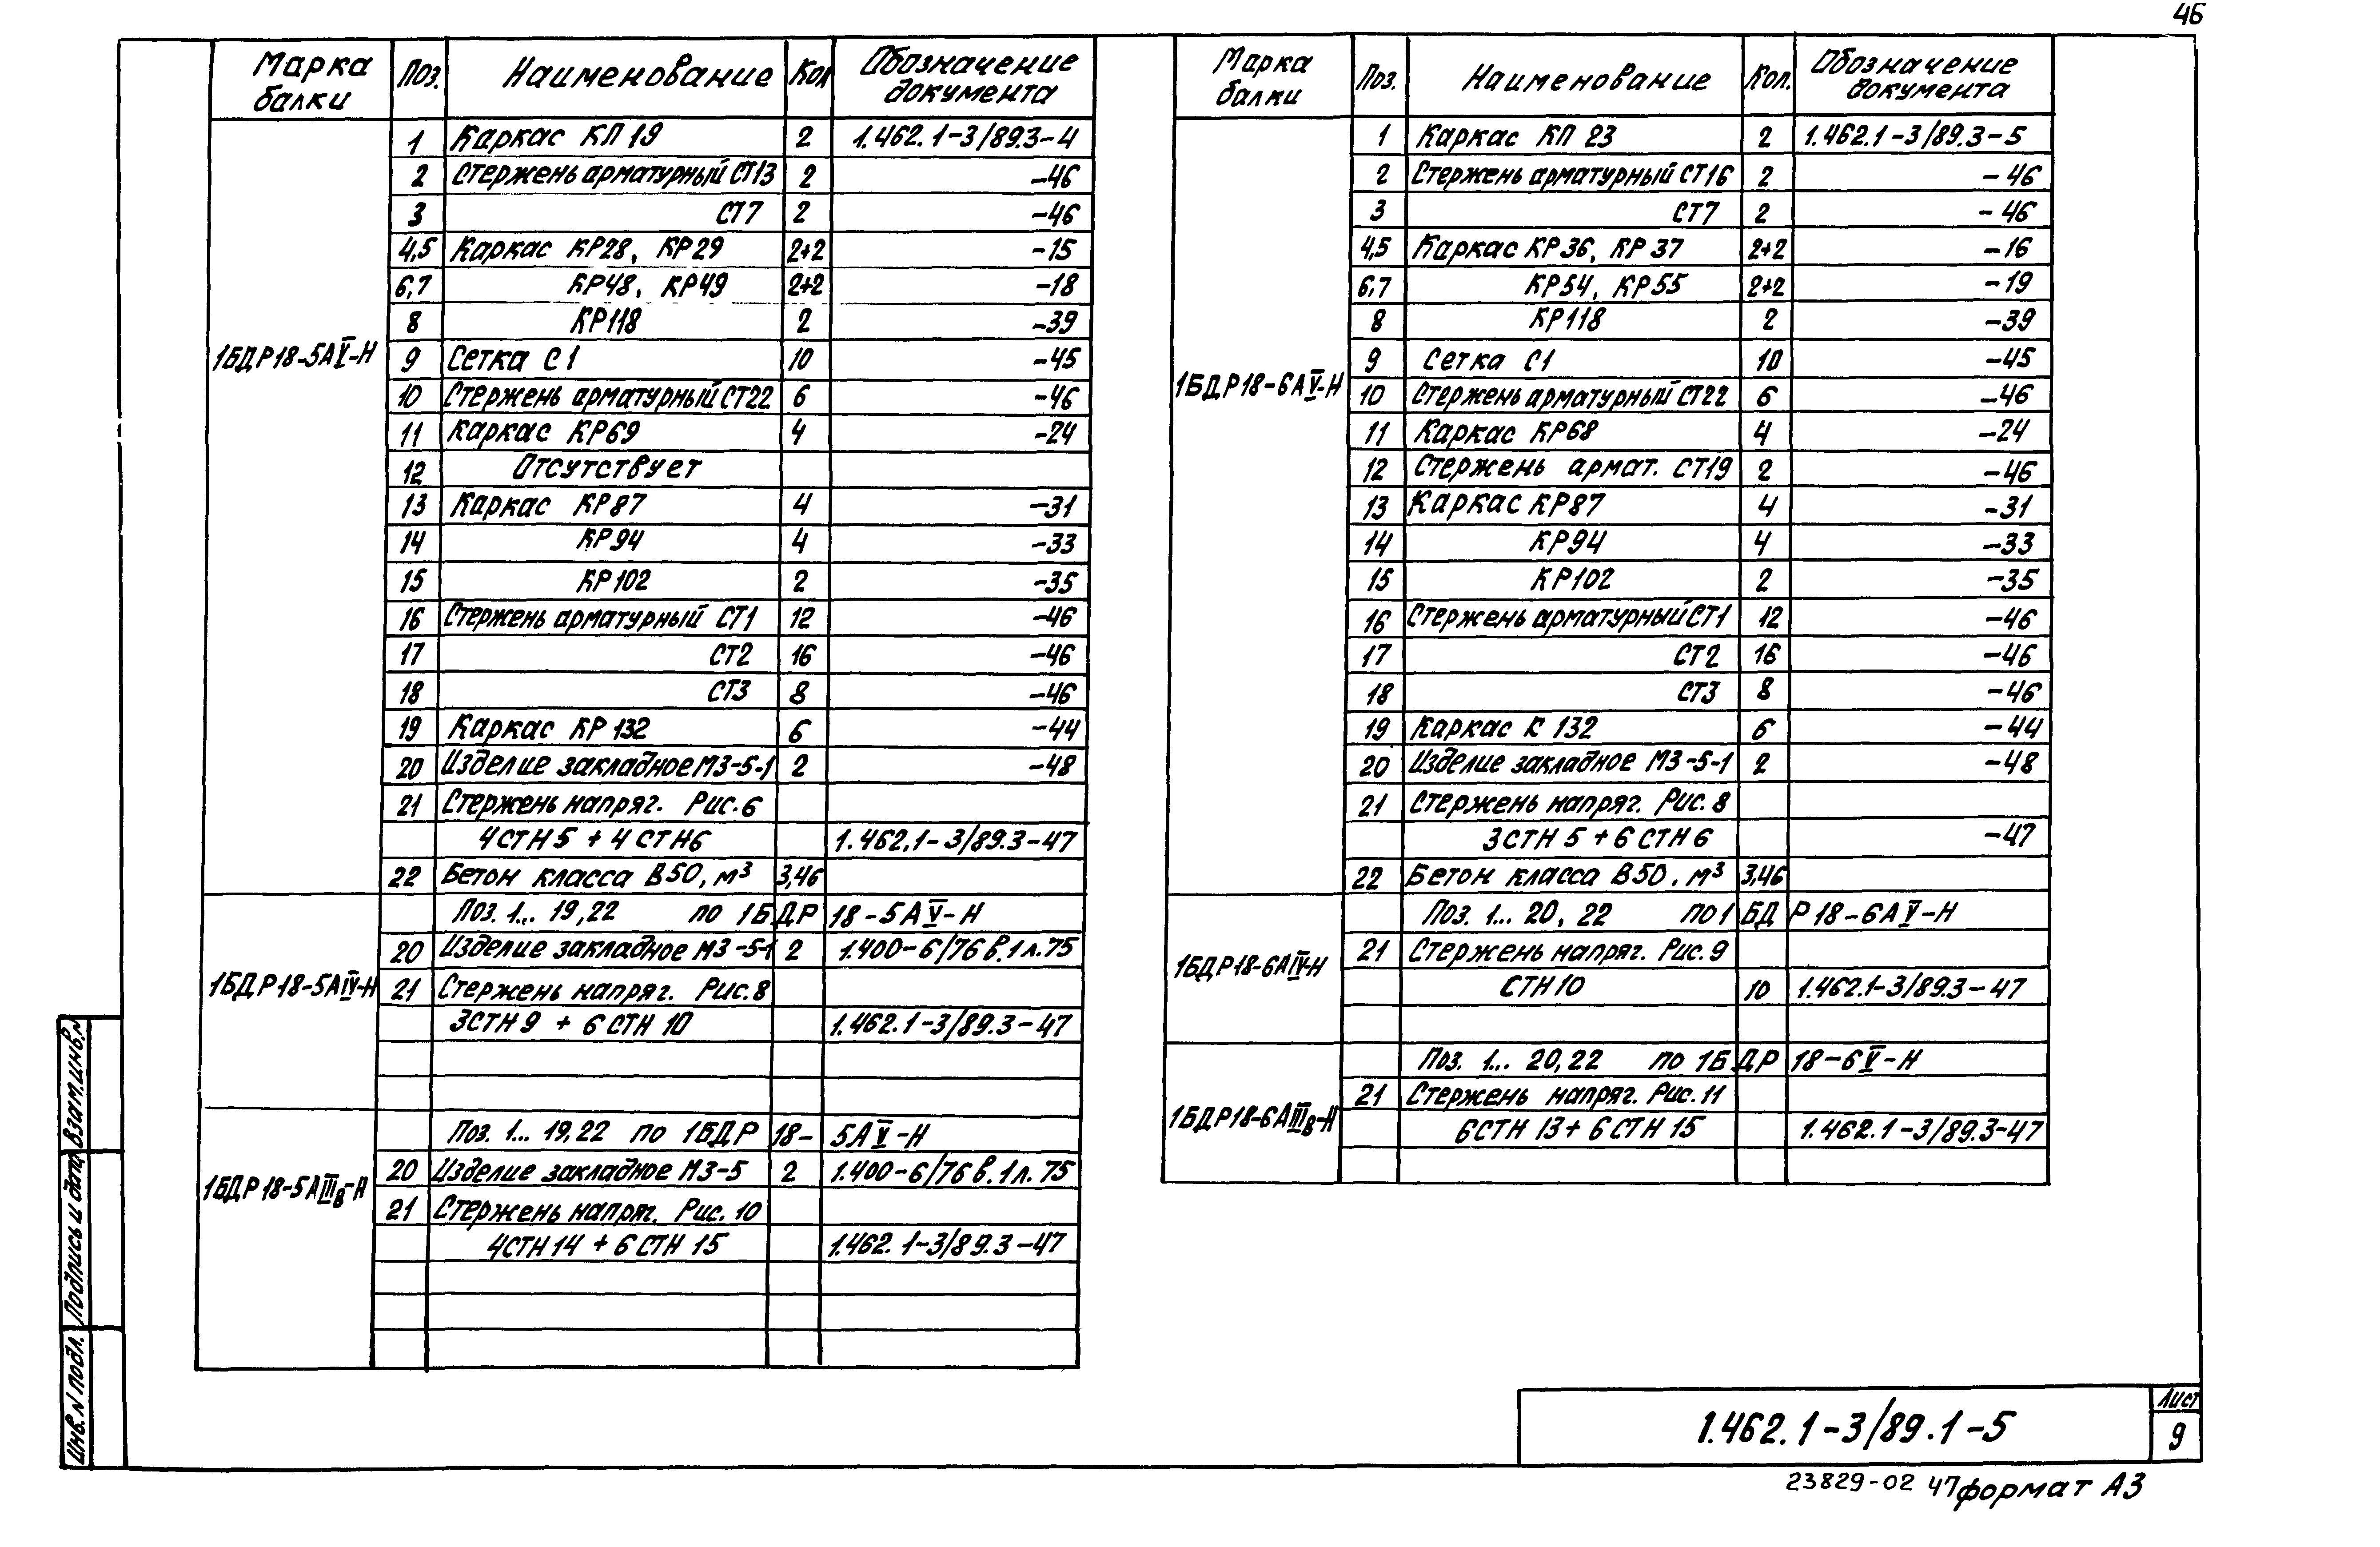 46
Марка балки Поз. Наименование Кол Обозначение документа
1БДР18-5АV-Н
1 Каркас КП 19 2 1.462.1-3/89.3-4
2 Стержень арматурный СТ13 2 -46
3 СТ7 2 -46
4,5 Каркас КР28, КР29 2+2 -15
6,7 КР48, КР49 2+2 -18
8 КР118 2 -39
9 Сетка С1 10 -45
10 Стержень арматурный СТ22 6 -46
11 Каркас КР69 4 -24
12 Отсутствует
13 Каркас КР87 4 -31
14 КР94 4 -33
15 КР102 2 -35
16 Стержень арматурный СТ1 12 -46
17 СТ2 16 -46
18 СТ3 8 -46
19 Каркас КР 132 6 -44
20 Изделие закладное М3-5-1 2 -48
21 Стержень напряг. Рис.6
4СТН5 + 4 СТН6 1.462.1-3/89.3-47
22 Бетон класса В50, м³ 3,46
1БДР18-5АIV-Н
Поз. 1... 19,22 по 1БДР 18-5АV-Н
20 Изделие закладное М3-5-1 2 1.400-6/76 в.1 л.75
21 Стержень напряг. Рис.8
3СТН9 + 6 СТН 10 1.462.1-3/89.3-47
1БДР18-5АIIIв-Н
Поз. 1... 19,22 по 1БДР 18-5АV-Н
20 Изделие закладное М3-5 2 1.400-6/76 в.1 л.75
21 Стержень напряг. Рис. 10
4СТН14 + 6 СТН 15 1.462.1-3/89.3-47
Марка балки Поз. Наименование Кол. Обозначение документа
1БДР18-6АV-Н
1 Каркас КП 23 2 1.462.1-3/89.3-5
2 Стержень арматурный СТ16 2 -46
3 СТ7 2 -46
4,5 Каркас КР36, КР 37 2+2 -16
6,7 КР54, КР55 2+2 -19
8 КР118 2 -39
9 Сетка С1 10 -45
10 Стержень арматурный СТ22 6 -46
11 Каркас КР68 4 -24
12 Стержень армат. СТ19 2 -46
13 Каркас КР87 4 -31
14 КР94 4 -33
15 КР102 2 -35
16 Стержень арматурный СТ1 12 -46
17 СТ2 16 -46
18 СТ3 8 -46
19 Каркас К 132 6 -44
20 Изделие закладное М3-5-1 2 -48
21 Стержень напряг. Рис. 8
3СТН 5 + 6 СТН 6 -47
22 Бетон класса В50, м³ 3,46
1БДР18-6АIV-Н
Поз. 1... 20, 22 по 1БДР 18-6АV-Н
21 Стержень напряг. Рис. 9
СТН10 10 1.462.1-3/89.3-47
1БДР18-6АIIIв-Н
Поз. 1... 20,22 по 1БДР 18-6V-Н
21 Стержень напряг. Рис. 11
6СТН 13 + 6 СТН 15 1.462.1-3/89.3-47
Взам.инв.N
Подпись и дата
Инв.N подл.
1.462.1-3/89.1-5
Лист
9
23829-02 47 формат А3